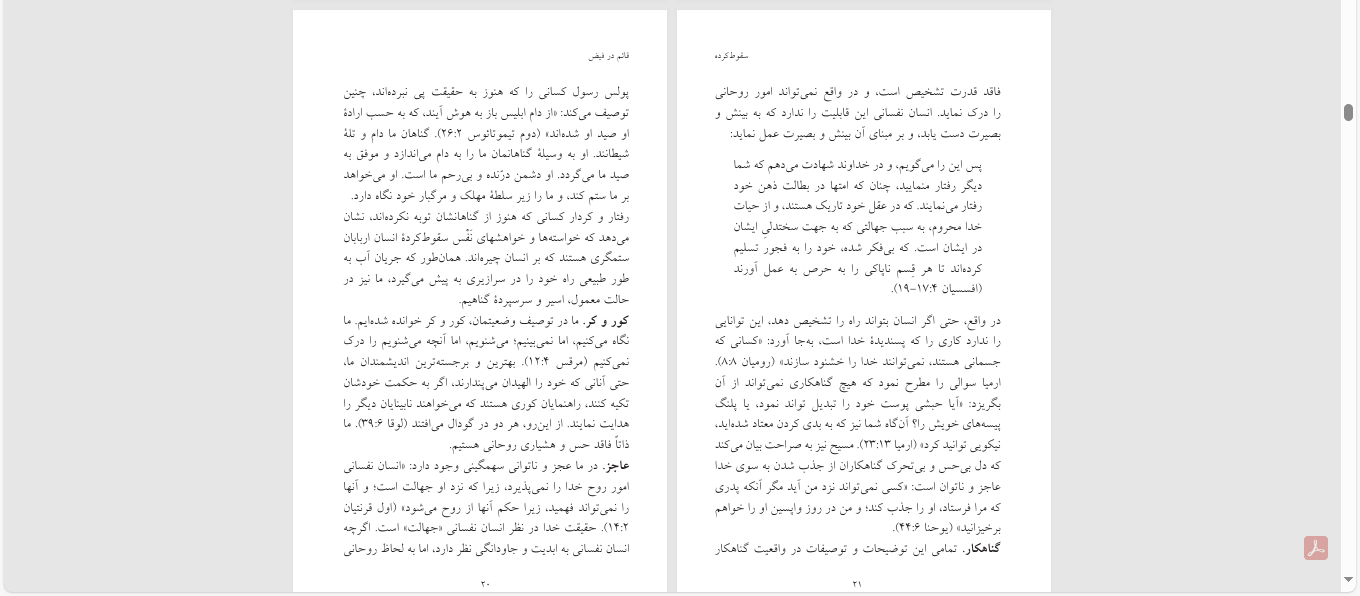 قائم در فیض
پولس رسول کسانی را که هنوز به حقیقت پی نبرده‌اند، چنین
توصیف می‌کند: «از دام ابلیس باز به هوش آیند، که به حسب ارادهٔ
او صید او شده‌اند» (دوم تیموتائوس ۲۶:۲). گناهان ما دام و تلهٔ
شیطانند. او به وسیلهٔ گناهانمان ما را به دام می‌اندازد و موفق به
صید ما می‌گردد. او دشمن درّنده و بی‌رحم ما است. او می‌خواهد
بر ما ستم کند، و ما را زیر سلطهٔ مهلک و مرگبار خود نگاه دارد.
رفتار و کردار کسانی که هنوز از گناهانشان توبه نکرده‌اند، نشان
می‌دهد که خواسته‌ها و خواهشهای نَفْس سقوط‌کردهٔ انسان اربابان
ستمگری هستند که بر انسان چیره‌اند. همان‌طور که جریان آب به
طور طبیعی راه خود را در سرازیری به پیش می‌گیرد، ما نیز در
حالت معمول، اسیر و سرسپردهٔ گناهیم.
کور و کر. ما در توصیف وضعیتمان، کور و کر خوانده شده‌ایم. ما
نگاه می‌کنیم، اما نمی‌بینیم؛ می‌شنویم، اما آنچه می‌شنویم را درک
نمی‌کنیم (مرقس ۱۲:۴). بهترین و برجسته‌ترین اندیشمندان ما،
حتی آنانی که خود را الهیدان می‌پندارند، اگر به حکمت خودشان
تکیه کنند، راهنمایان کوری هستند که می‌خواهند نابینایان دیگر را
هدایت نمایند. از این‌رو، هر دو در گودال می‌افتند (لوقا ۳۹:۶). ما
ذاتاً فاقد حس و هشیاری روحانی هستیم.
عاجز. در ما عجز و ناتوانی سهمگینی وجود دارد: «انسان نفسانی
امور روح خدا را نمی‌پذیرد، زیرا که نزد او جهالت است؛ و آنها
را نمی‌تواند فهمید، زیرا حکم آنها از روح می‌شود» (اول قرنتیان
۱۴:۲). حقیقت خدا در نظر انسان نفسانی «جهالت» است. اگرچه
انسان نفسانی به ابدیت و جاودانگی نظر دارد، اما به لحاظ روحانی
۲۰
سقوط‌کرده
فاقد قدرت تشخیص است، و در واقع نمی‌تواند امور روحانی
را درک نماید. انسان نفسانی این قابلیت را ندارد که به بینش و
بصیرت دست یابد، و بر مبنای آن بینش و بصیرت عمل نماید:
پس این را می‌گویم، و در خداوند شهادت می‌دهم که شما
دیگر رفتار منمایید، چنان که امتها در بطالت ذهن خود
رفتار می‌نمایند. که در عقل خود تاریک هستند، و از حیات
خدا محروم، به سبب جهالتی که به جهت سختدلیِ ایشان
در ایشان است. که بی‌فکر شده، خود را به فجور تسلیم
کرده‌اند تا هر قِسم ناپاکی را به حرص به عمل آورند
(افسسیان ۱۷:۴–۱۹).
در واقع، حتی اگر انسان بتواند راه را تشخیص دهد، این توانایی
را ندارد کاری را که پسندیدهٔ خدا است، به‌جا آورد: «کسانی که
جسمانی هستند، نمی‌توانند خدا را خشنود سازند» (رومیان ۸:۸).
ارمیا سوالی را مطرح نمود که هیچ گناهکاری نمی‌تواند از آن
بگریزد: «آیا حبشی پوست خود را تبدیل تواند نمود، یا پلنگ
پیسه‌های خویش را؟ آن‌گاه شما نیز که به بدی کردن معتاد شده‌اید،
نیکویی توانید کرد» (ارمیا ۲۳:۱۳). مسیح نیز به صراحت بیان می‌کند
که دل بی‌حس و بی‌تحرک گناهکاران از جذب شدن به سوی خدا
عاجز و ناتوان است: «کسی نمی‌تواند نزد من آید مگر آنکه پدری
که مرا فرستاد، او را جذب کند؛ و من در روز واپسین او را خواهم
برخیزانید» (یوحنا ۴۴:۶).
گناهکار. تمامی این توضیحات و توصیفات در واقعیت گناهکار
۲۱